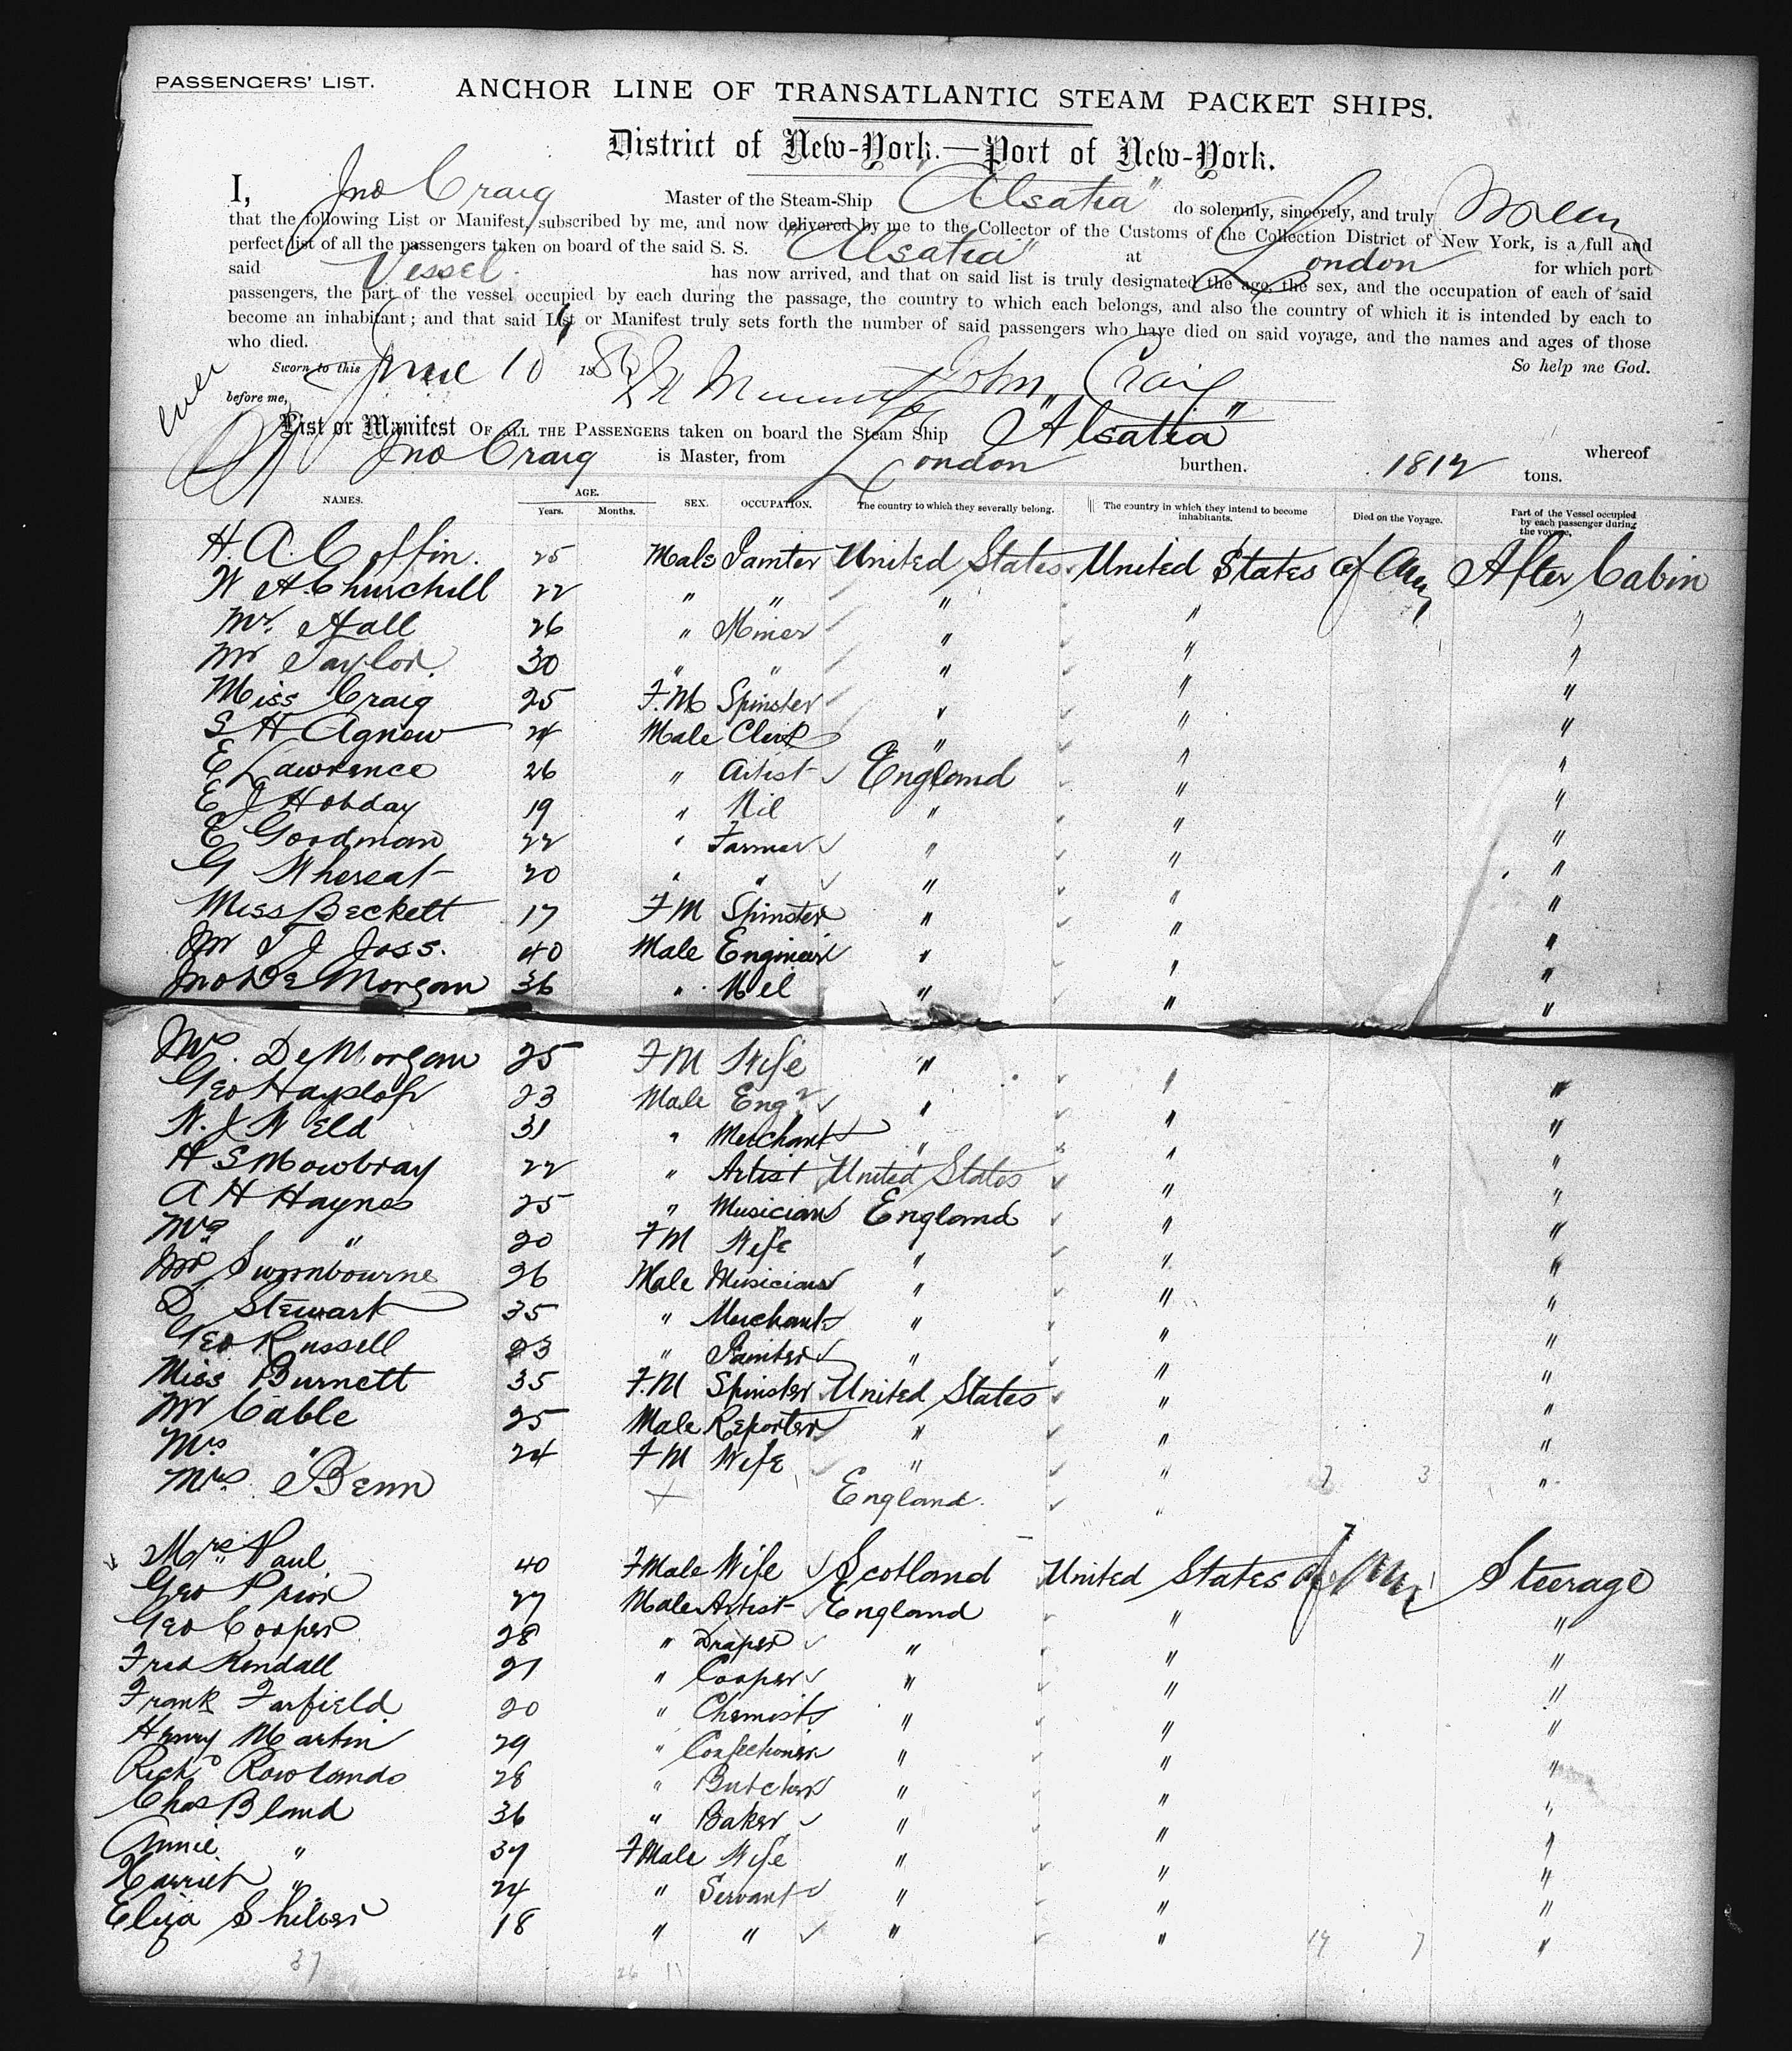 PASSENGERS' LIST.
ANCHOR LINE OF TRANSATLANTIC STEAM PACKET SHIPS.
District of New-York.—Port of New-York.
I, Jno Craig Master of the Steam-Ship "Alsatia" do solemnly, sincerely, and truly
that the following List or Manifest, subscribed by me, and now delivered by me to the Collector of the Customs of the Collection District of New York, is a full and
perfect list of all the passengers taken on board of the said S. S. "Alsatia" at London for which port
said Vessel has now arrived, and that on said list is truly designated the age, the sex, and the occupation of each of said
passengers, the part of the vessel occupied by each during the passage, the country to which each belongs, and also the country of which it is intended by each to
become an inhabitant; and that said List or Manifest truly sets forth the number of said passengers who have died on said voyage, and the names and ages of those
who died. So help me God.
Sworn to this June 10 18 John Craig
before me,
List or Manifest OF ALL THE PASSENGERS taken on board the Steam Ship "Alsatia" whereof
Jno Craig is Master, from London burthen. 1812 tons.
NAMES. AGE. Years. Months. SEX. OCCUPATION. The country to which they severally belong. The country in which they intend to become inhabitants. Died on the Voyage. Part of the Vessel occupied by each passenger during the voyage.
H. A. Coffin. 25 Male Painter United States United States of Am After Cabin
W A. Churchill 22 " " " " "
Mr. Hall 26 " Miner " " "
Mr Taylor. 30 " " " " "
Miss Craig 25 F.M Spinster " " "
S H Agnew 24 Male Clerk " " "
E Lawrence 26 " Artist England " "
E J Hobday 19 " Nil " " "
E Goodman 22 " Farmer " " "
G Whereat 20 " " " " "
Miss Beckett 17 F M Spinster " " "
Mr T J Joss. 40 Male Engineer " " "
Jno De Morgan 36 " Nil " " "
Mrs. De Morgan 25 F M Wife " " "
Geo Hayslop 23 Male Engr " " "
W. J Weld 31 " Merchant " " "
H S Mowbray 22 " Artist United States " "
A H Haynes 25 " Musician England " "
Mrs " 20 F M Wife " " "
Mr Swinbourne 26 Male Musician " " "
D Stewart 35 " Merchant " " "
Geo Russell 23 " Painter " " "
Miss Burnett 35 F.M Spinster United States " "
Mr Cable 25 Male Reporter " " "
Mrs " 24 F M Wife " " "
Mrs. Benn England " "
Mrs Paul 40 FMale Wife Scotland United States of Am Steerage
Geo Prior 27 Male Artist England " "
Geo Cooper 28 " Draper " " "
Fred Kendall 21 " Cooper " " "
Frank Farfield 20 " Chemist " " "
Henry Martin 29 " Confectioner " " "
Richd Rowlands 28 " Butcher " " "
Chas Bland 36 " Baker " " "
Annie " 37 FMale Wife " " "
Harriet " 24 " Servant " " "
Eliza Shilver 18 " " " " "
37 26 11 19 7